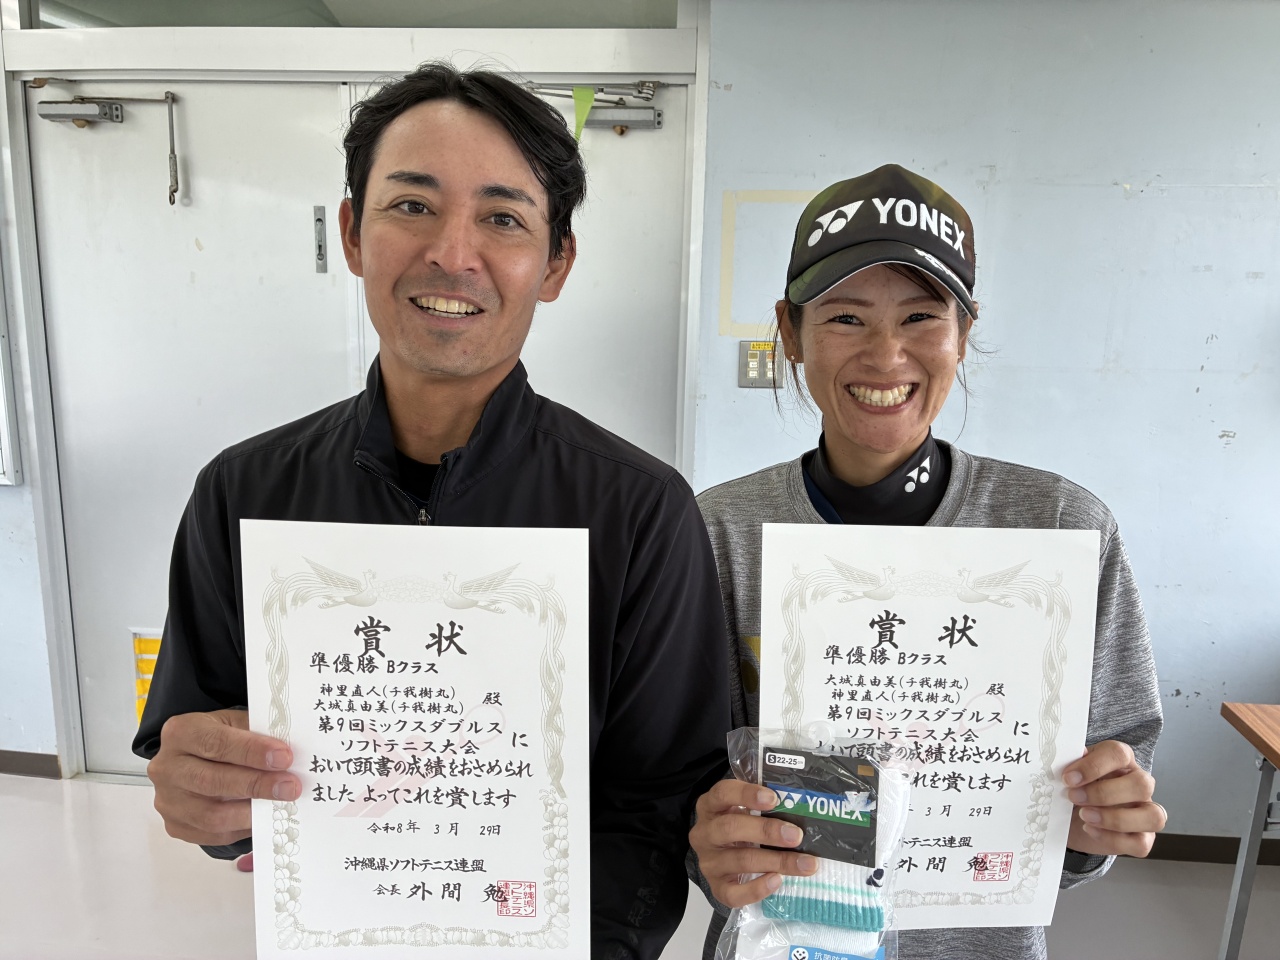 YONEX
賞状
準優勝 Bクラス
神里直人(千我樹丸)
大城真由美(千我樹丸)
殿
第9回ミックスダブルス
ソフトテニス大会
に
おいて頭書の成績をおさめられ
ました よってこれを賞します
令和8年 3月 29日
沖縄県ソフトテニス連盟
会長 外間 勉
賞状
準優勝 Bクラス
大城真由美(千我樹丸)
神里直人(千我樹丸)
殿
第9回ミックスダブルス
ソフトテニス大会
に
おいて頭書の成績をおさめられ
れを賞します
3月 29日
テニス連盟
外間 勉
S 22-25
YONEX